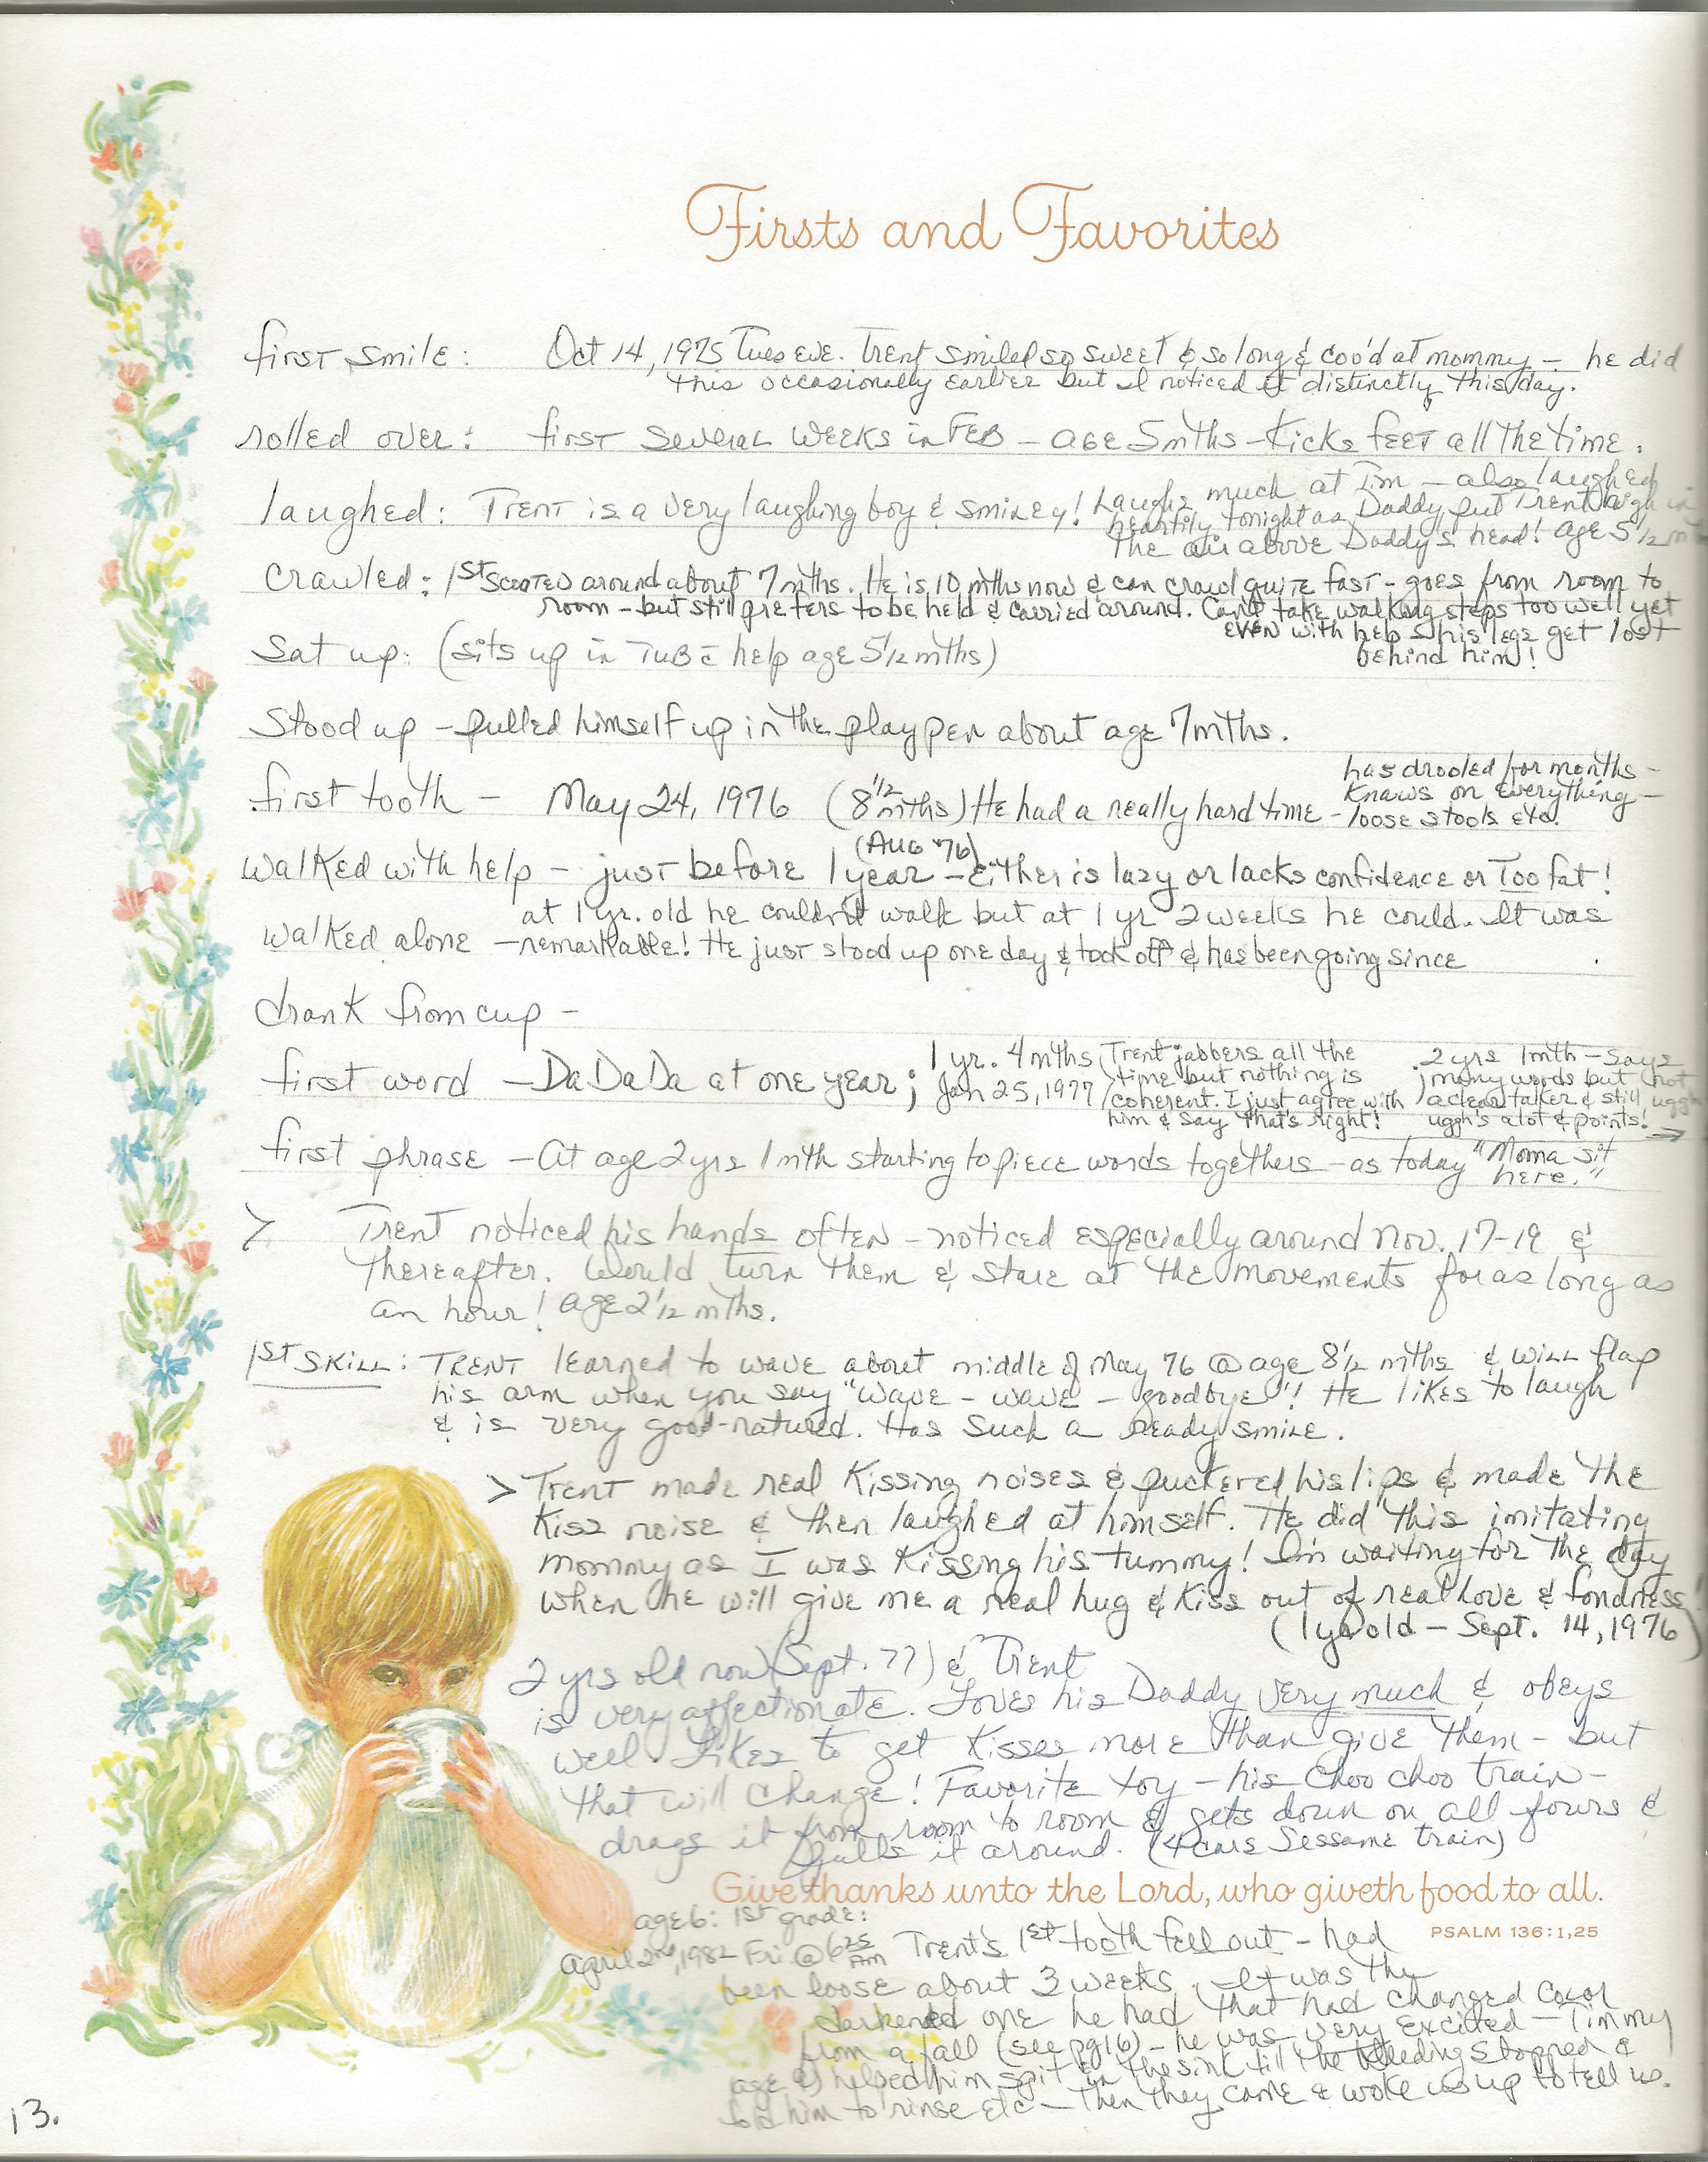 Firsts and Favorites
first smile: Oct 14, 1975 Tues eve. Trent smiled so sweet & so long & coo'd at mommy - he did
this occasionally earlier but I noticed it distinctly this day.
rolled over: first several weeks in Feb - age 5 mths - Kicks feet all the time.
laughed: Trent is a very laughing boy & smiley! Laughs much at Tim - also laughed
heartily tonight as Daddy put Trent high in
the air above Daddy's head! age 5 1/2 mths
Crawled: 1st scooted around about 7 mths. He is 10 mths now & can crawl quite fast - goes from room to
room - but still prefers to be held & carried around. Can't take walking steps too well yet
even with help & his legs get lost
behind him!
Sat up: (sits up in tub c̄ help age 5 1/2 mths)
Stood up - pulled himself up in the playpen about age 7 mths.
first tooth - May 24, 1976 (8 1/2 mths) He had a really hard time -
has drooled for months -
Knaws on everything -
loose stools etc.
(Aug '76)
Walked with help - just before 1 year - Either is lazy or lacks confidence or Too fat!
at 1 yr. old he couldn't walk but at 1 yr 2 weeks he could. It was
walked alone - remarkable! He just stood up one day & took off & has been going since
drank from cup -
first word - Da Da Da at one year;
1 yr. 4 mths
Jan 25, 1977
Trent jabbers all the
time but nothing is
coherent. I just agree with
him & say that's right!
2 yrs 1 mth - says
many words but not
a clear talker & still
uggh's alot & points! →
uggh
first phrase - At age 2 yrs 1 mth starting to piece words togethers - as today "Moma sit
here."
> Trent noticed his hands often - noticed especially around Nov. 17-19 &
thereafter. Would turn them & stare at the movements for as long as
an hour! age 2 1/2 mths.
1st Skill: Trent learned to wave about middle of May 76 @ age 8 1/2 mths & will flap
his arm when you say "wave - wave - goodbye"! He likes to laugh
& is very good-natured. Has such a ready smile.
> Trent made real Kissing noises & puckered his lips & made the
Kiss noise & then laughed at himself. He did this imitating
mommy as I was Kissing his tummy! I'm waiting for the day
when he will give me a real hug & Kiss out of real love & fondness!
(1 yr old - Sept. 14, 1976)
2 yrs old now (Sept. 77) & Trent
is very affectionate. Loves his Daddy very much & obeys
well. Likes to get Kisses more than give them - but
that will change! Favorite toy - his Choo choo train -
drags it from room to room & gets down on all fours &
pulls it around. (4 cars Sessame train)
Give thanks unto the Lord, who giveth food to all.
PSALM 136:1,25
age 6: 1st grade:
April 2nd, 1982 Fri @ 6 25 AM Trent's 1st tooth fell out - had
been loose about 3 weeks. It was the
darkened one he had that had changed color
from a fall (see pg 16) - he was very excited - Timmy
age helped him spit in the sink till the bleeding stopped &
told him to rinse etc - Then they came & woke us up to tell us.
13.